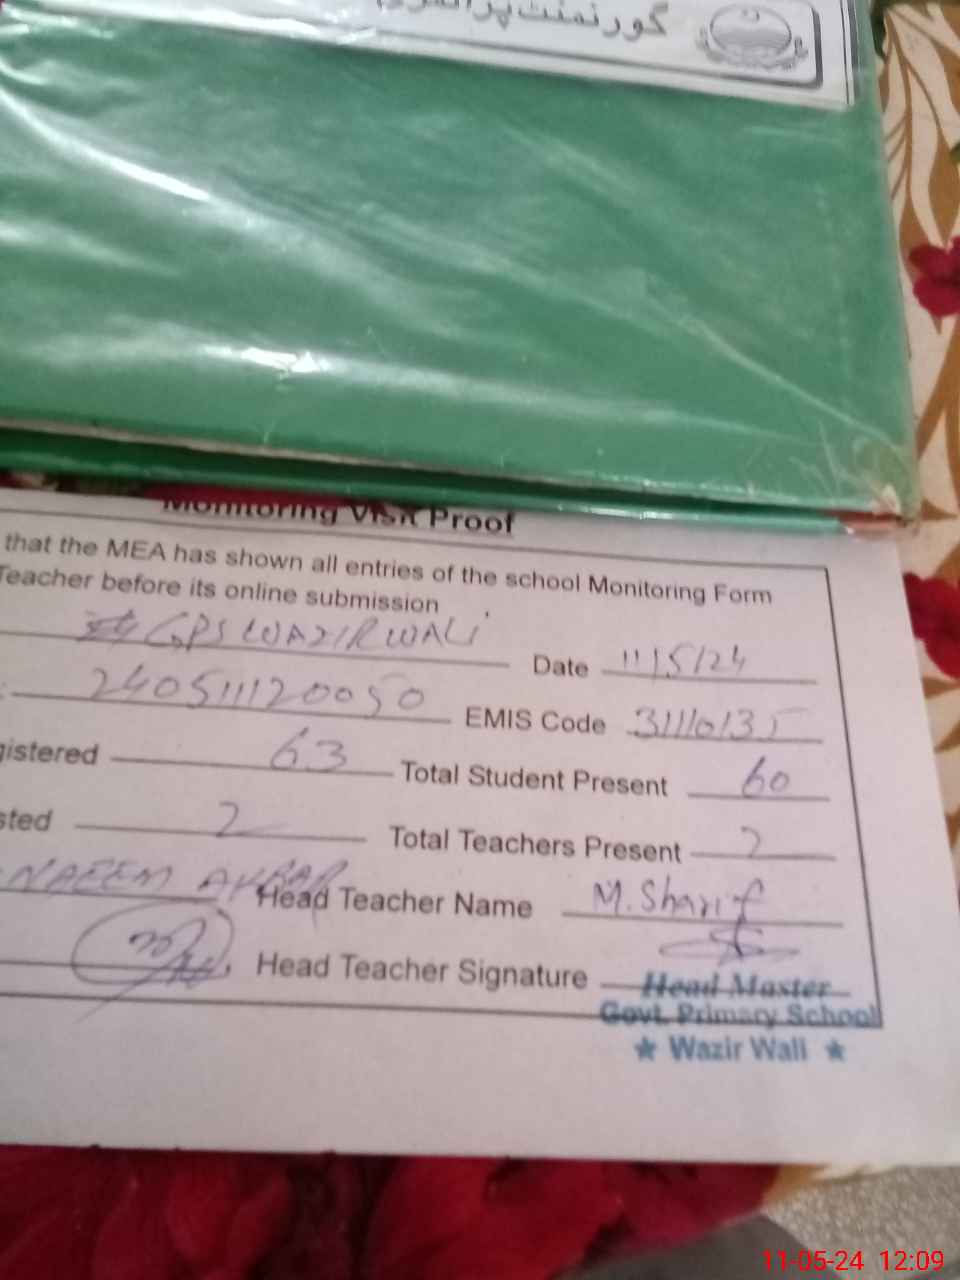 گورنمنٹ پرائمری
Monitoring Visit Proof
that the MEA has shown all entries of the school Monitoring Form
Teacher before its online submission
GPS WAZIR WALI Date 11/5/24
240511120050 EMIS Code 31110135
gistered 63 Total Student Present 60
sted 2 Total Teachers Present 2
NAEEM AKBAR Head Teacher Name M. Sharif
Head Teacher Signature
Head Master
Govt. Primary School
★ Wazir Wali ★
11-05-24 12:09